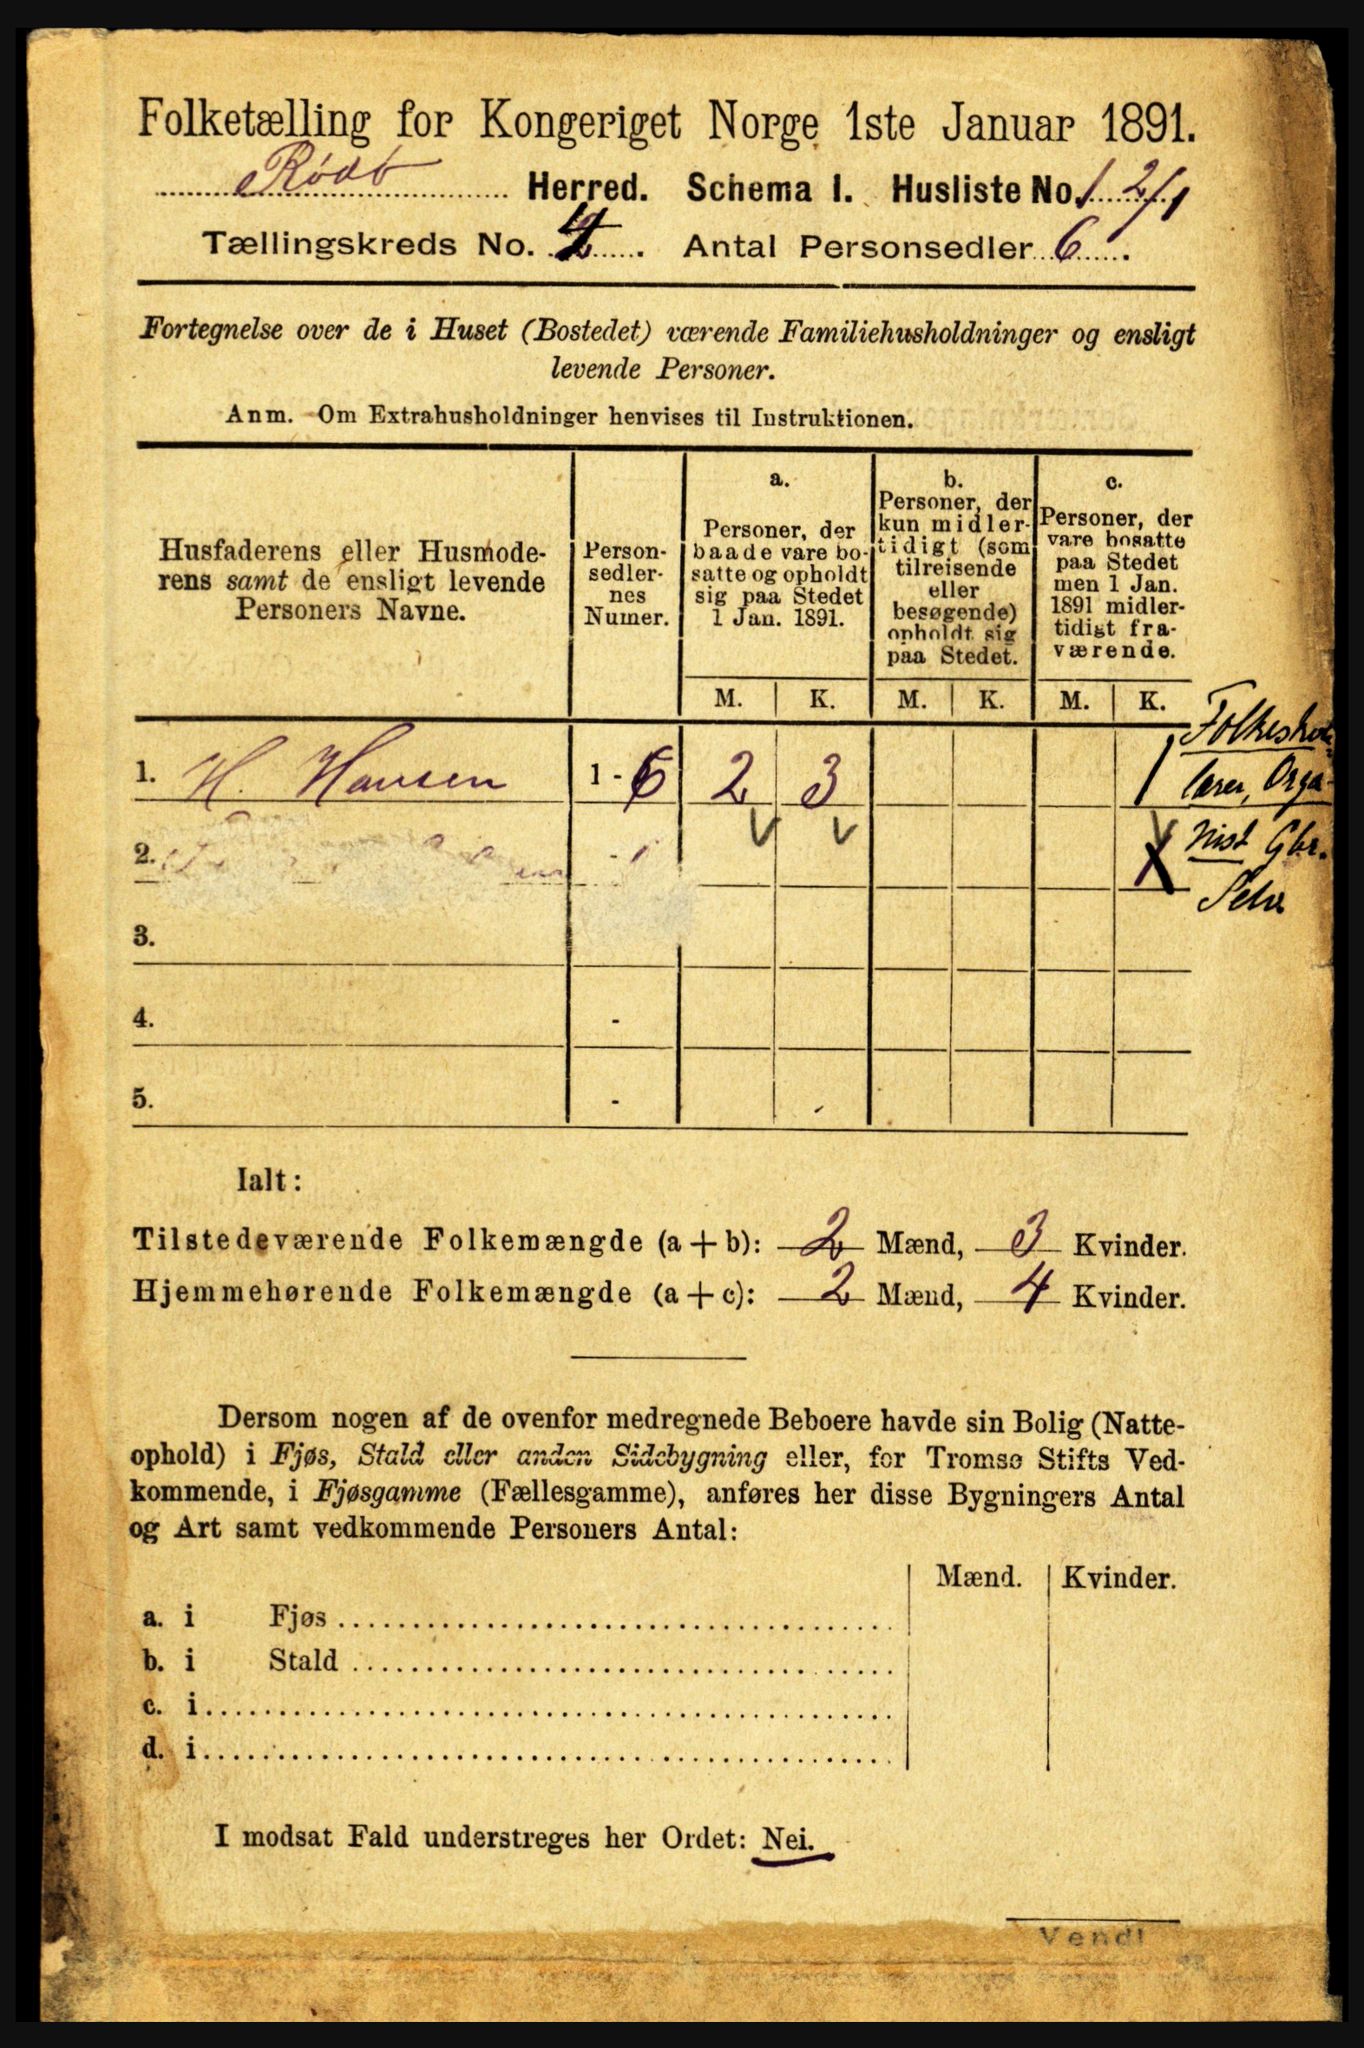 Folketælling for Kongeriget Norge 1ste Januar 1891.
Rødø Herred. Schema I. Husliste No. 1
Tællingskreds No. 4. Antal Personsedler 6.
Fortegnelse over de i Huset (Bostedet) værende Familiehusholdninger og ensligt
levende Personer.
Anm. Om Extrahusholdninger henvises til Instruktionen.
Husfaderens eller Husmode-
rens samt de ensligt levende
Personers Navne.
Person-
sedler-
nes
Numer.
a.
Personer, der
baade vare bo-
satte og opholdt
sig paa Stedet
1 Jan. 1891.
b.
Personer, der
kun midler-
tidigt (som
tilreisende
eller
besøgende)
opholdt sig
paa Stedet.
c.
Personer, der
vare bosatte
paa Stedet
men 1 Jan.
1891 midler-
tidigt fra-
værende.
M. K. M. K. M. K.
1. H. Hansen 1 - 6 2 3 1
Folkeskole
lærer, Orga-
nist Gbr.
Selv
2.
3.
4. -
5. -
Ialt:
Tilstedeværende Folkemængde (a + b): 2 Mænd, 3 Kvinder.
Hjemmehørende Folkemængde (a + c): 2 Mænd, 4 Kvinder.
Dersom nogen af de ovenfor medregnede Beboere havde sin Bolig (Natte-
ophold) i Fjøs, Stald eller anden Sidebygning eller, for Tromsø Stifts Ved-
kommende, i Fjøsgamme (Fællesgamme), anføres her disse Bygningers Antal
og Art samt vedkommende Personers Antal:
Mænd. Kvinder.
a. i Fjøs
b. i Stald
c. i
d. i
I modsat Fald understreges her Ordet: Nei.
Vend!